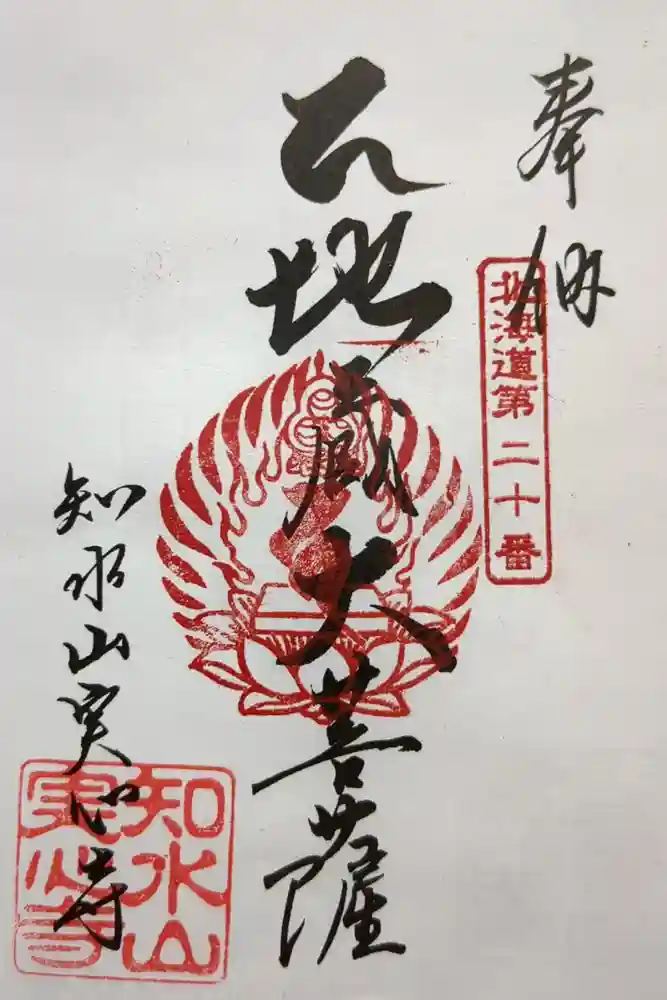 奉納
北海道第二十番
石地蔵大菩薩
知水山実心寺
知水山
実心寺